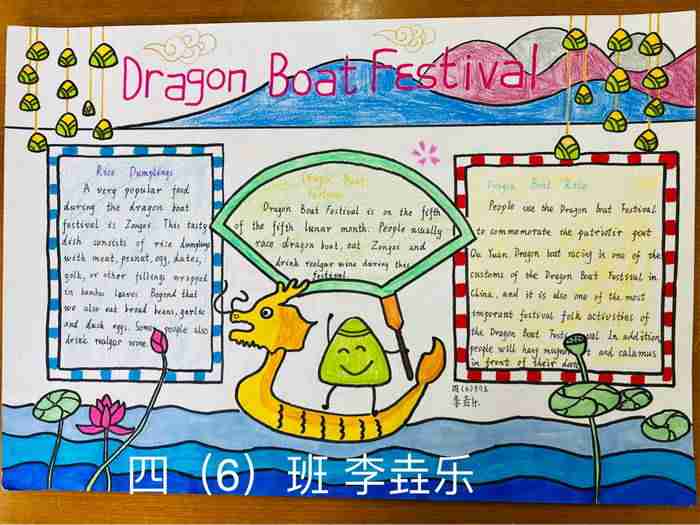 Dragon Boat Festival
Rice Dumplings
A very popular food
during the dragon boat
festival is Zongzi. This tasty
dish consists of rice dumplings
with meat, peanut, egg, dates,
or other fillings wrapped
in bamboo leaves. Beyond that
we also eat broad beans, garlic
and duck eggs. Some people also
drink realgar wine.
Dragon Boat
Festival
Dragon Boat Festival is on the fifth
of the fifth lunar month. People usually
race dragon boat, eat Zongzi and
drink realgar wine during this
festival.
Dragon Boat Race
People use the Dragon Boat Festival
to commemorate the patriotic poet
Qu Yuan. Dragon boat racing is one of the
customs of the Dragon Boat Festival in
China, and it is also one of the most
important festival folk activities of
the Dragon Boat Festival. In addition,
people will hang and calamus
in front of their
四(6)班
李垚乐
四（6）班 李垚乐